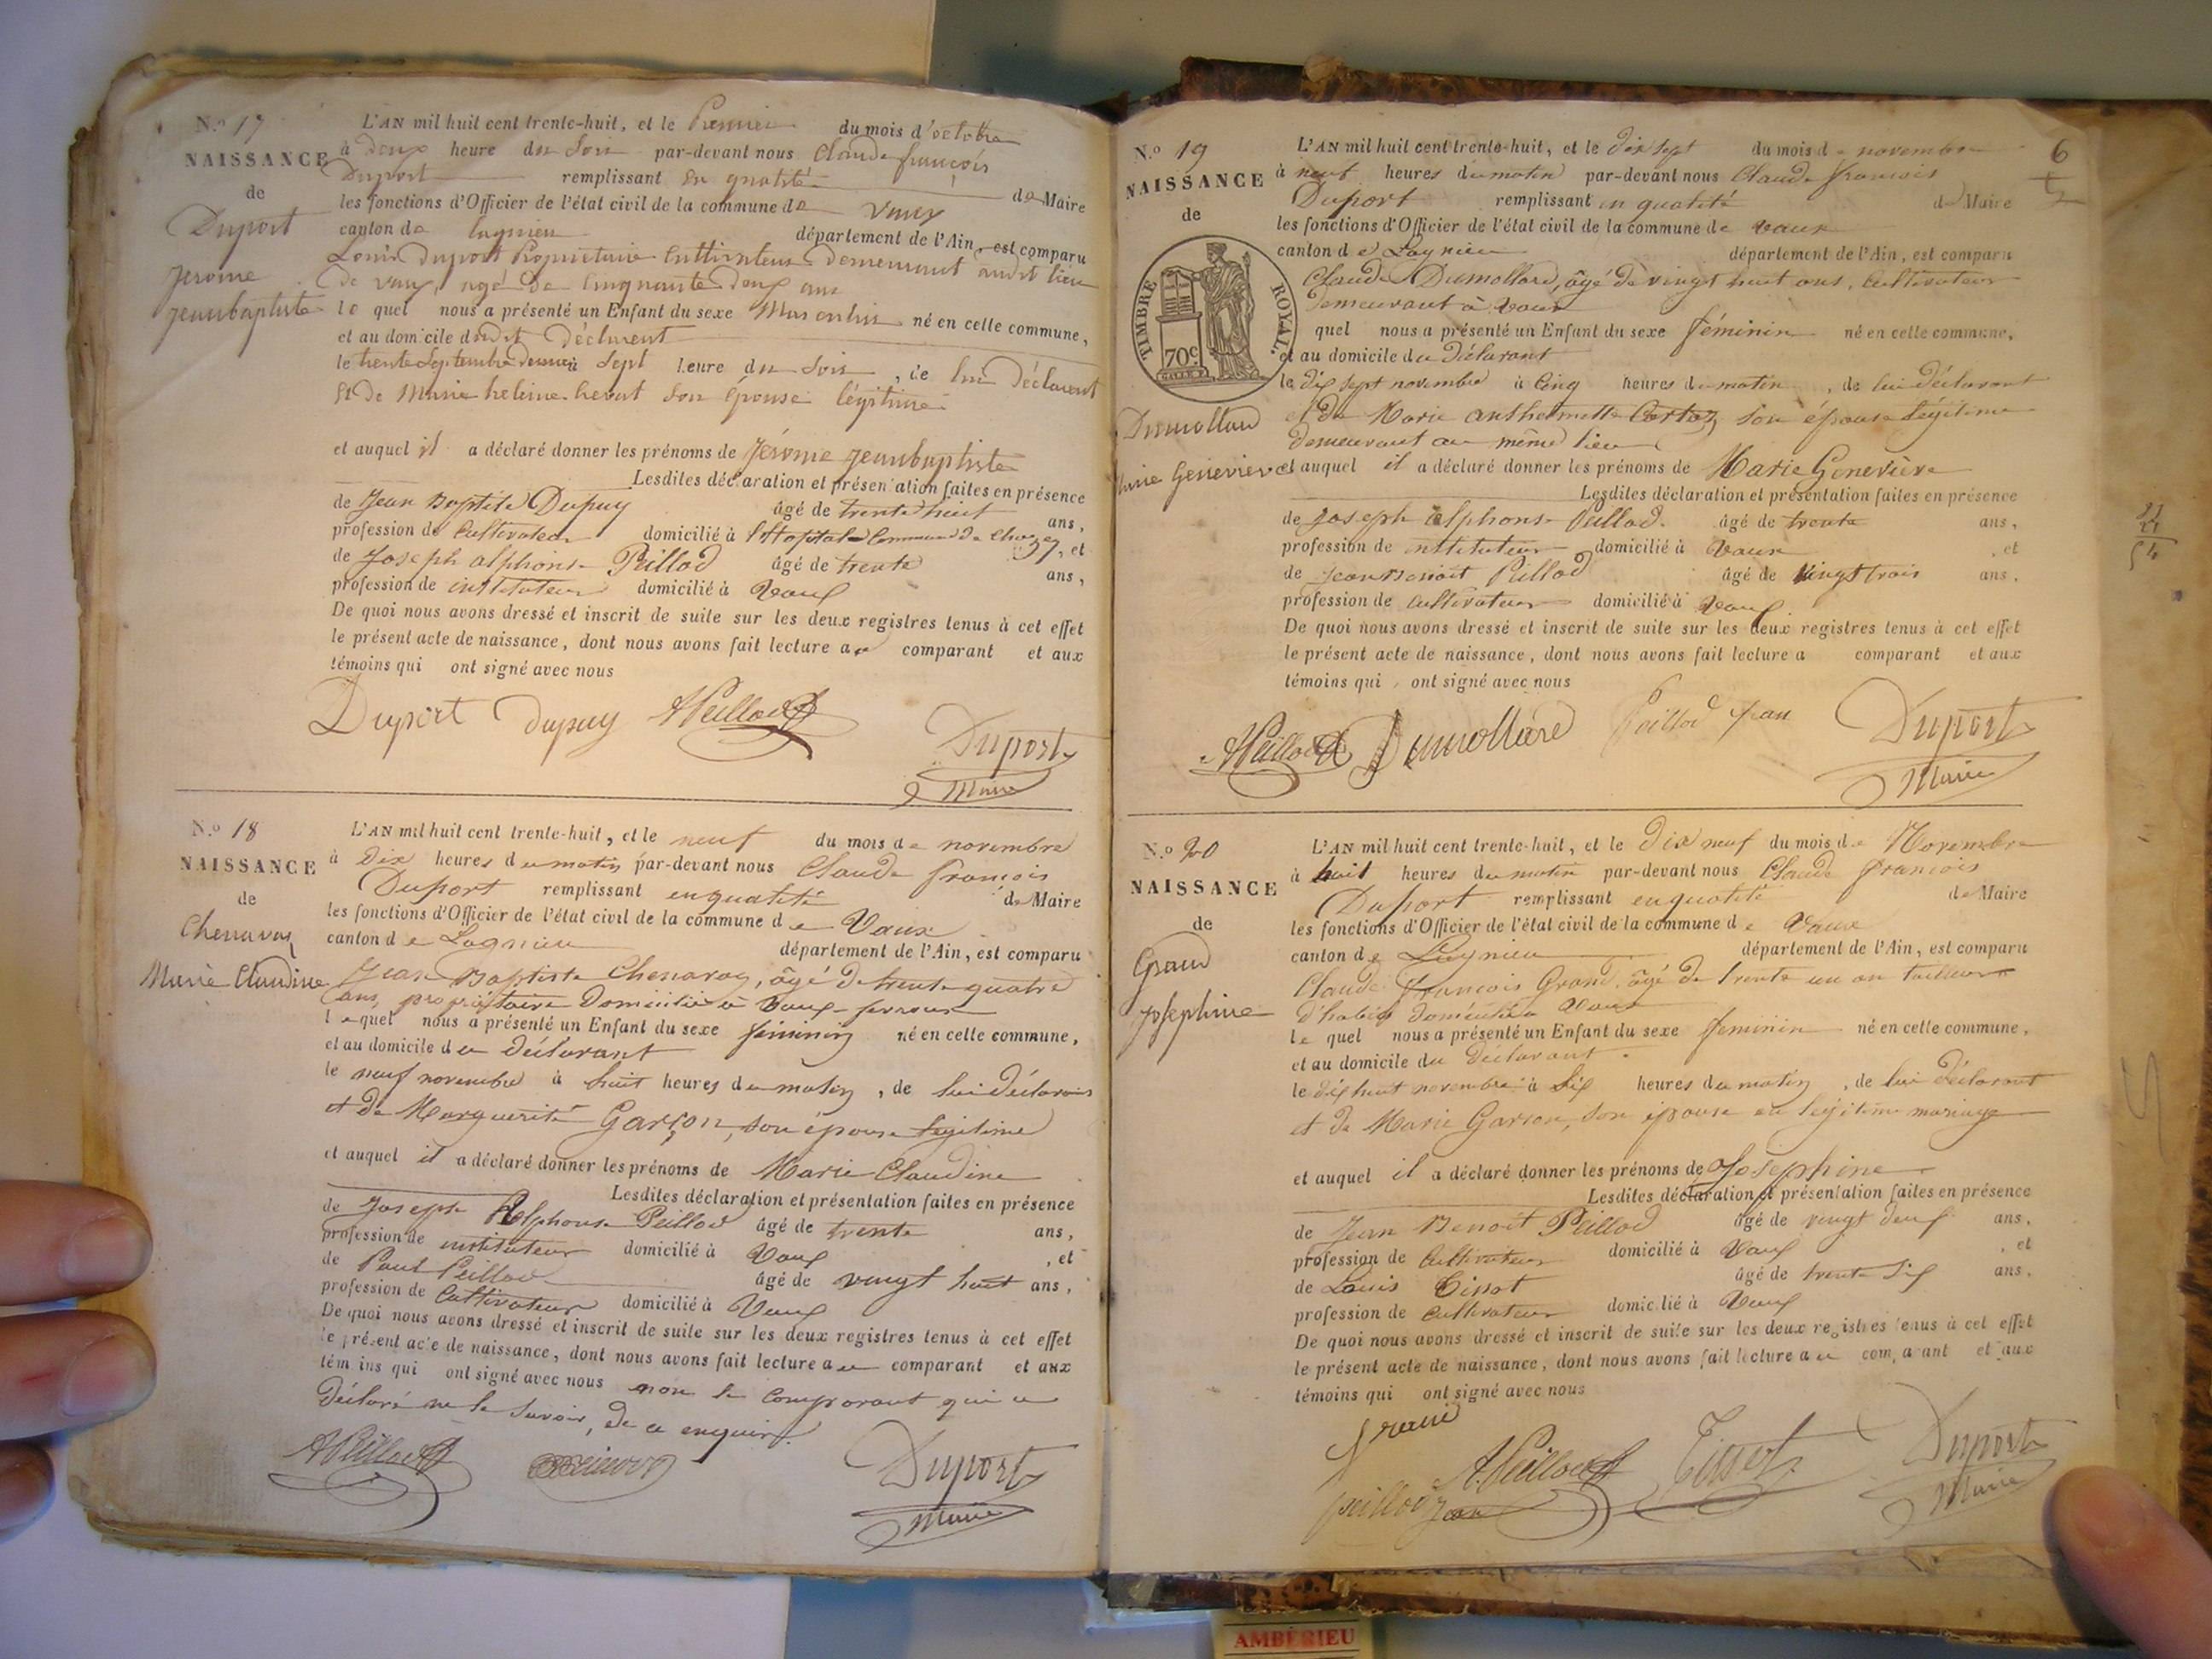 N.º 17
NAISSANCE
de
Duport
Jerome
jeanbaptiste
L'AN mil huit cent trente-huit, et le Premier du mois d'octobre
à deux heure du soir par-devant nous Claude françois
Duport remplissant en qualité de Maire
les fonctions d'Officier de l'état civil de la commune de vaux
canton de lagnieu département de l'Ain, est comparu
Louis duport Propriétaire Cultivateur demeurant audit lieu
de vaux, agé de Cinquante deux ans
le quel nous a présenté un Enfant du sexe Masculin né en celle commune,
et au domicile dudit déclarent
le trente Septembre dernier à Sept heure du soir, de lui déclarent
Et de Marie heleine son Épouse légitime
et auquel il a déclaré donner les prénoms de Jérome jeanbaptiste
Lesdites déclaration et présentation faites en présence
de Jean Baptiste Dupuy âgé de trente huit ans,
profession de Cultivateur domicilié à l'hopital Commune de, et
de Joseph alphonse Peillod âgé de trente ans,
profession de instituteur domicilié à Vaux
De quoi nous avons dressé et inscrit de suite sur les deux registres tenus à cet effet
le présent acte de naissance, dont nous avons fait lecture au comparant et aux
témoins qui ont signé avec nous
Duport dupuy APeillod
Duport
Maire
N.º 18
NAISSANCE
de
Chenavaz
Marie Claudine
L'AN mil huit cent trente-huit, et le neuf du mois de novembre
à Dix heures du matin par-devant nous Claude françois
Duport remplissant en qualité de Maire
les fonctions d'Officier de l'état civil de la commune de Vaux
canton de Lagnieu département de l'Ain, est comparu
Jean Baptiste Chenavaz, âgé de trente quatre
ans, propriétaire Domicilié à Vaux
lequel nous a présenté un Enfant du sexe féminin né en celle commune,
et au domicile du déclarant
le neuf novembre à huit heures du matin, de lui déclarant
et de Marguerite Garçon, son épouse légitime
et auquel il a déclaré donner les prénoms de Marie Claudine
Lesdites déclaration et présentation faites en présence
de Joseph Alphonse Peillod âgé de trente ans,
profession de instituteur domicilié à Vaux, et
de Paul Peillod âgé de vingt huit ans,
profession de Cultivateur domicilié à Vaux
De quoi nous avons dressé et inscrit de suite sur les deux registres tenus à cet effet
le présent acte de naissance, dont nous avons fait lecture au comparant et aux
témoins qui ont signé avec nous non le Comparant qui a
Déclaré ne le savoir, de ce enquis.
APeillod
Duport
Maire
6
N.º 19
NAISSANCE
de
TIMBRE ROYAL
70c
Dumollard
Marie Genevieve
L'AN mil huit cent trente-huit, et le dix sept du mois de novembre
à neuf heures du matin par-devant nous Claude françois
Duport remplissant en qualité de Maire
les fonctions d'Officier de l'état civil de la commune de vaux
canton de Lagnieu département de l'Ain, est comparu
Claude Dumollard, âgé de vingt huit ans, Cultivateur
demeurant à Vaux
quel nous a présenté un Enfant du sexe féminin né en celle commune,
et au domicile du déclarant
le dix sept novembre à Cinq heures du matin, de lui déclarant
et de Marie anthelmette Cortoz, son épouse légitime
demeurant au même lieu
et auquel il a déclaré donner les prénoms de Marie Geneviève
Lesdites déclaration et présentation faites en présence
de Joseph alphonse Peillod. âgé de trente ans,
profession de instituteur domicilié à Vaux, et
de Jean Benoit Peillod âgé de Vingt trois ans,
profession de Cultivateur domicilié à Vaux.
De quoi nous avons dressé et inscrit de suite sur les deux registres tenus à cet effet
le présent acte de naissance, dont nous avons fait lecture a comparant et aux
témoins qui ont signé avec nous
APeillod Dumollard Peillod jean Duport
Maire
N.º 20
NAISSANCE
de
Grand
josephine
L'AN mil huit cent trente-huit, et le Dix neuf du mois de Novembre
à huit heures du matin par-devant nous Claude françois
Duport remplissant en qualité de Maire
les fonctions d'Officier de l'état civil de la commune de Vaux
canton de Lagnieu département de l'Ain, est comparu
Claude françois Grand, âgé de trente un an tailleur
d'habits domicilié à Vaux
le quel nous a présenté un Enfant du sexe féminin né en celle commune,
et au domicile du déclarant.
le dix huit novembre à Six heures du matin, de lui déclarant
et de Marie Garson, son épouse en légitime mariage
et auquel il a déclaré donner les prénoms de Joséphine
Lesdites déclaration et présentation faites en présence
de Jean Benoit Peillod âgé de vingt deux ans,
profession de Cultivateur domicilié à Vaux, et
de Louis Tissot âgé de trente six ans.
profession de Cultivateur domicilié à Vaux
De quoi nous avons dressé et inscrit de suite sur les deux registres tenus à cet effet
le présent acte de naissance, dont nous avons fait lecture au comparant et aux
témoins qui ont signé avec nous
grand
peillod jean A.Peillod Tissot Duport
Maire
AMBÉRIEU